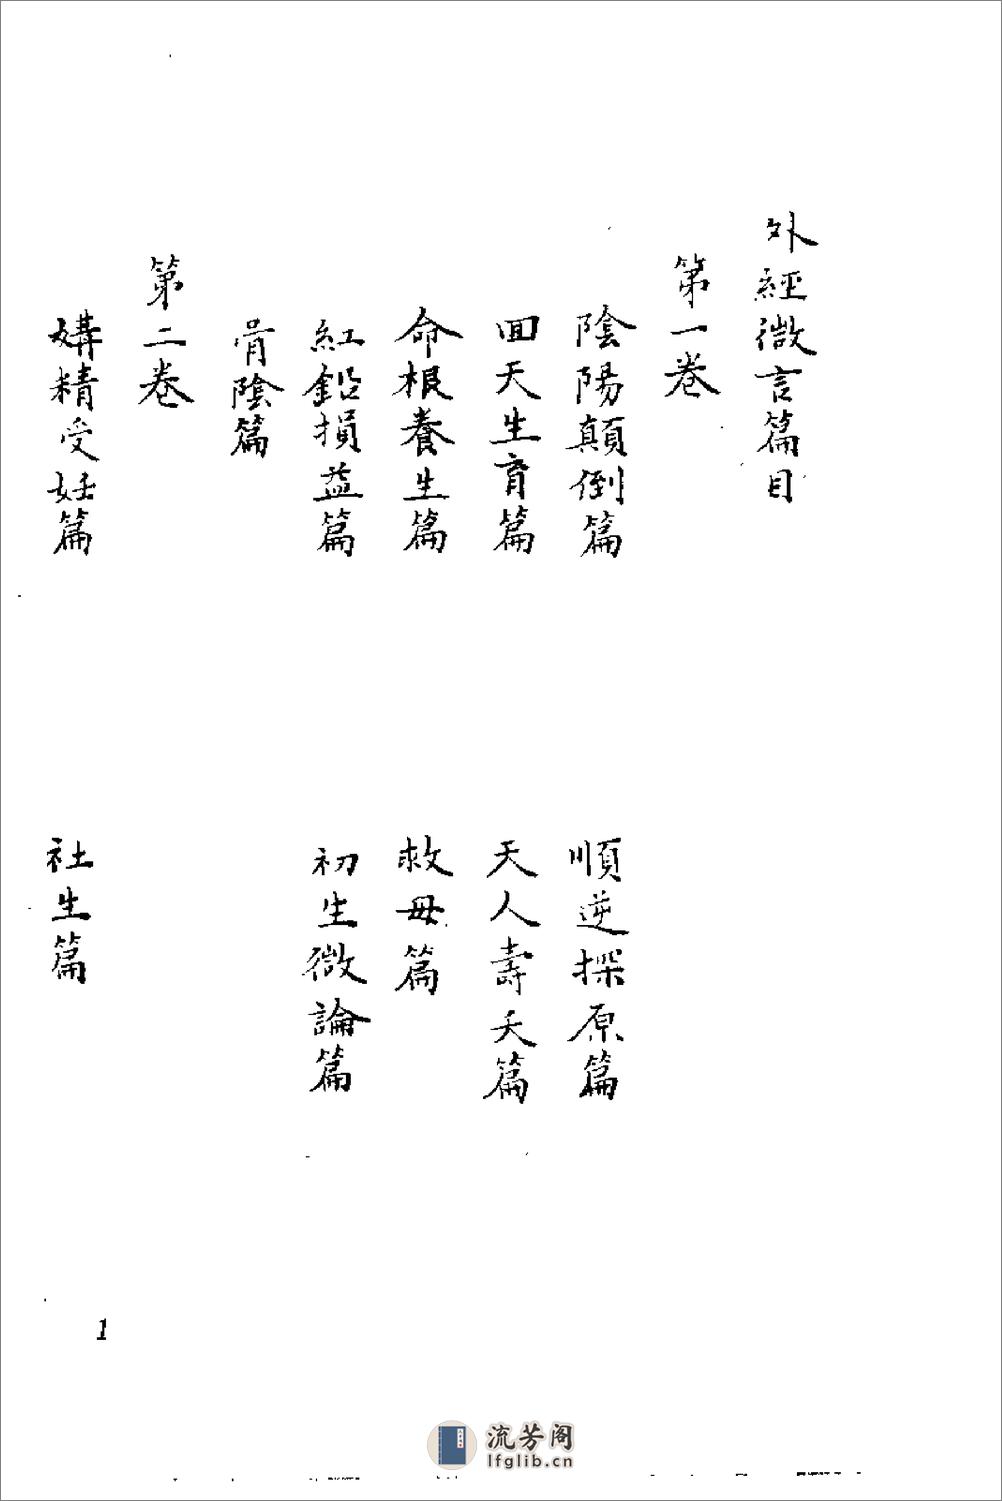 外經微言篇目
第一卷
陰陽顛倒篇
順逆探原篇
回天生育篇
天人壽夭篇
命根養生篇
救母篇
紅鉛損益篇
初生微論篇
骨陰篇
第二卷
媾精受妊篇
社生篇
1
流芳阁
lfglib.cn